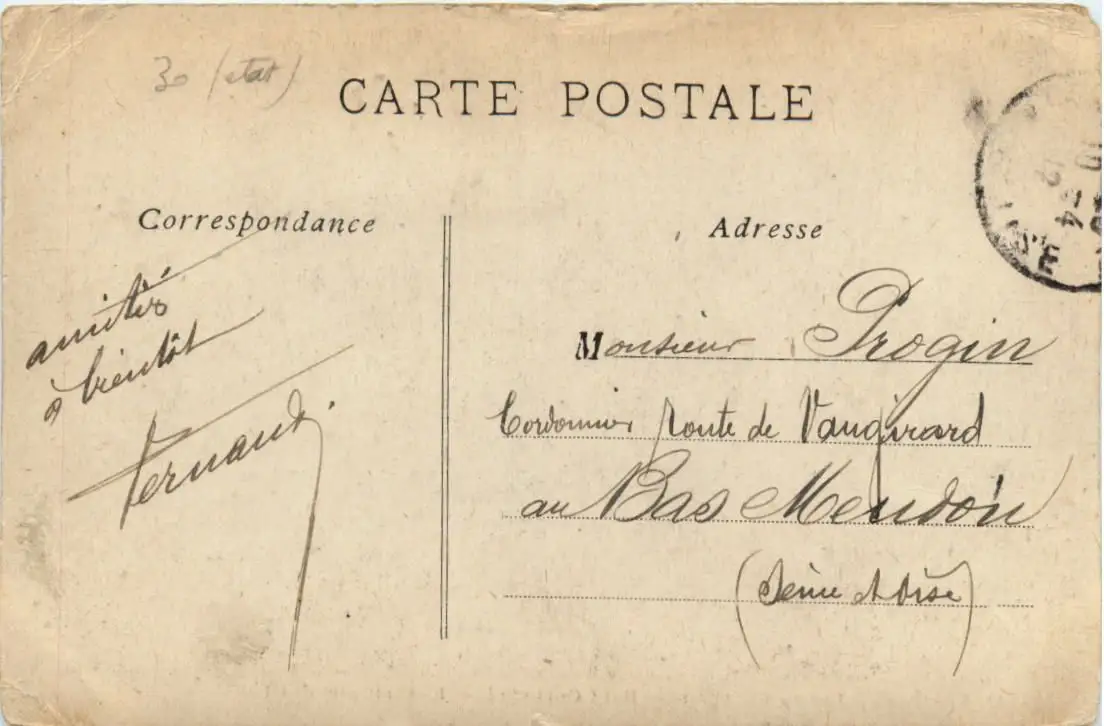 30 (état)
CARTE POSTALE
Correspondance
Adresse
amitiés
à bientôt
Fernand.
Monsieur Progin
Cordonnier route de Vaugirard
au Bas Meudon
(Seine et Oise)